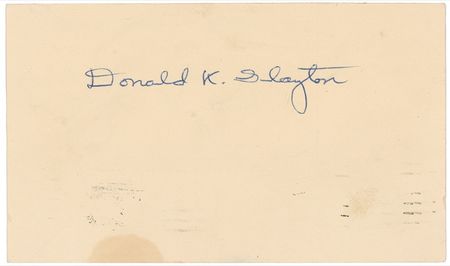 Donald K. Slayton